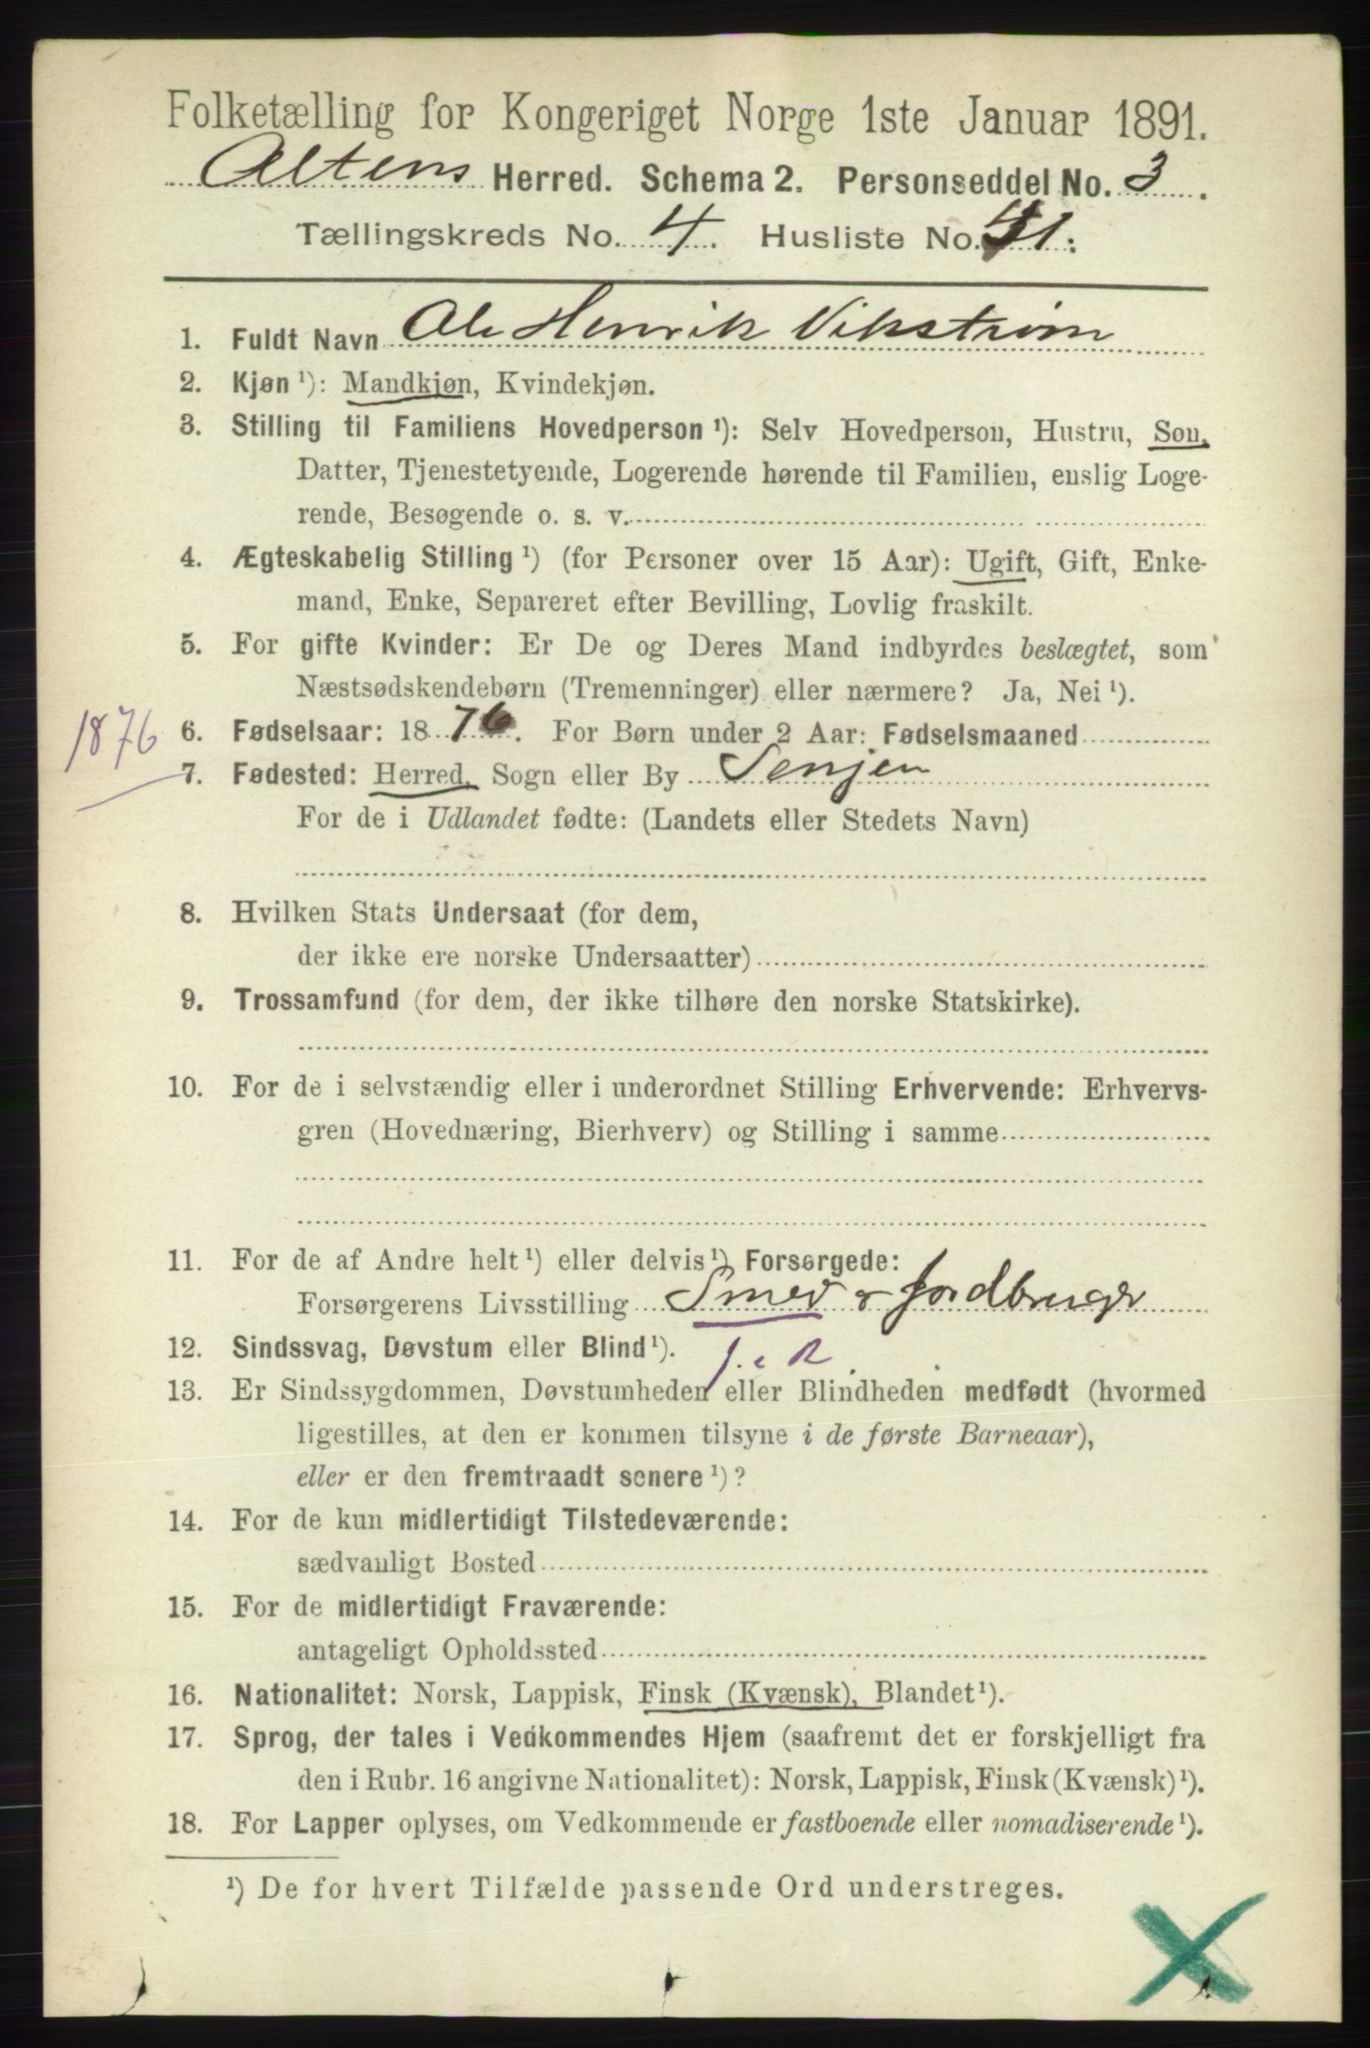 Folketælling for Kongeriget Norge 1ste Januar 1891.
Altens Herred. Schema 2. Personseddel No. 3.
Tællingskreds No. 4. Husliste No. 41.
1. Fuldt Navn Ole Henrik Vikstrøm
2. Kjøn ¹): Mandkjøn, Kvindekjøn.
3. Stilling til Familiens Hovedperson ¹): Selv Hovedperson, Hustru, Søn,
Datter, Tjenestetyende, Logerende hørende til Familien, enslig Loge-
rende, Besøgende o. s. v.
4. Ægteskabelig Stilling ¹) (for Personer over 15 Aar): Ugift, Gift, Enke-
mand, Enke, Separeret efter Bevilling, Lovlig fraskilt.
5. For gifte Kvinder: Er De og Deres Mand indbyrdes beslægtet, som
Næstsødskendebørn (Tremenninger) eller nærmere? Ja, Nei ¹).
1876
6. Fødselsaar: 1876. For Børn under 2 Aar: Fødselsmaaned
7. Fødested: Herred, Sogn eller By Senjen
For de i Udlandet fødte: (Landets eller Stedets Navn)
8. Hvilken Stats Undersaat (for dem,
der ikke ere norske Undersaatter)
9. Trossamfund (for dem, der ikke tilhøre den norske Statskirke).
10. For de i selvstændig eller i underordnet Stilling Erhvervende: Erhvervs-
gren (Hovednæring, Bierhverv) og Stilling i samme
11. For de af Andre helt ¹) eller delvis ¹) Forsørgede:
Forsørgerens Livsstilling Smed & Jordbruger
12. Sindssvag, Døvstum eller Blind ¹).
13. Er Sindssygdommen, Døvstumheden eller Blindheden medfødt (hvormed
ligestilles, at den er kommen tilsyne i de første Barneaar),
eller er den fremtraadt senere ¹)?
14. For de kun midlertidigt Tilstedeværende:
sædvanligt Bosted
15. For de midlertidigt Fraværende:
antageligt Opholdssted
16. Nationalitet: Norsk, Lappisk, Finsk (Kvænsk), Blandet ¹).
17. Sprog, der tales i Vedkommendes Hjem (saafremt det er forskjelligt fra
den i Rubr. 16 angivne Nationalitet): Norsk, Lappisk, Finsk (Kvænsk) ¹).
18. For Lapper oplyses, om Vedkommende er fastboende eller nomadiserende ¹).
¹) De for hvert Tilfælde passende Ord understreges.